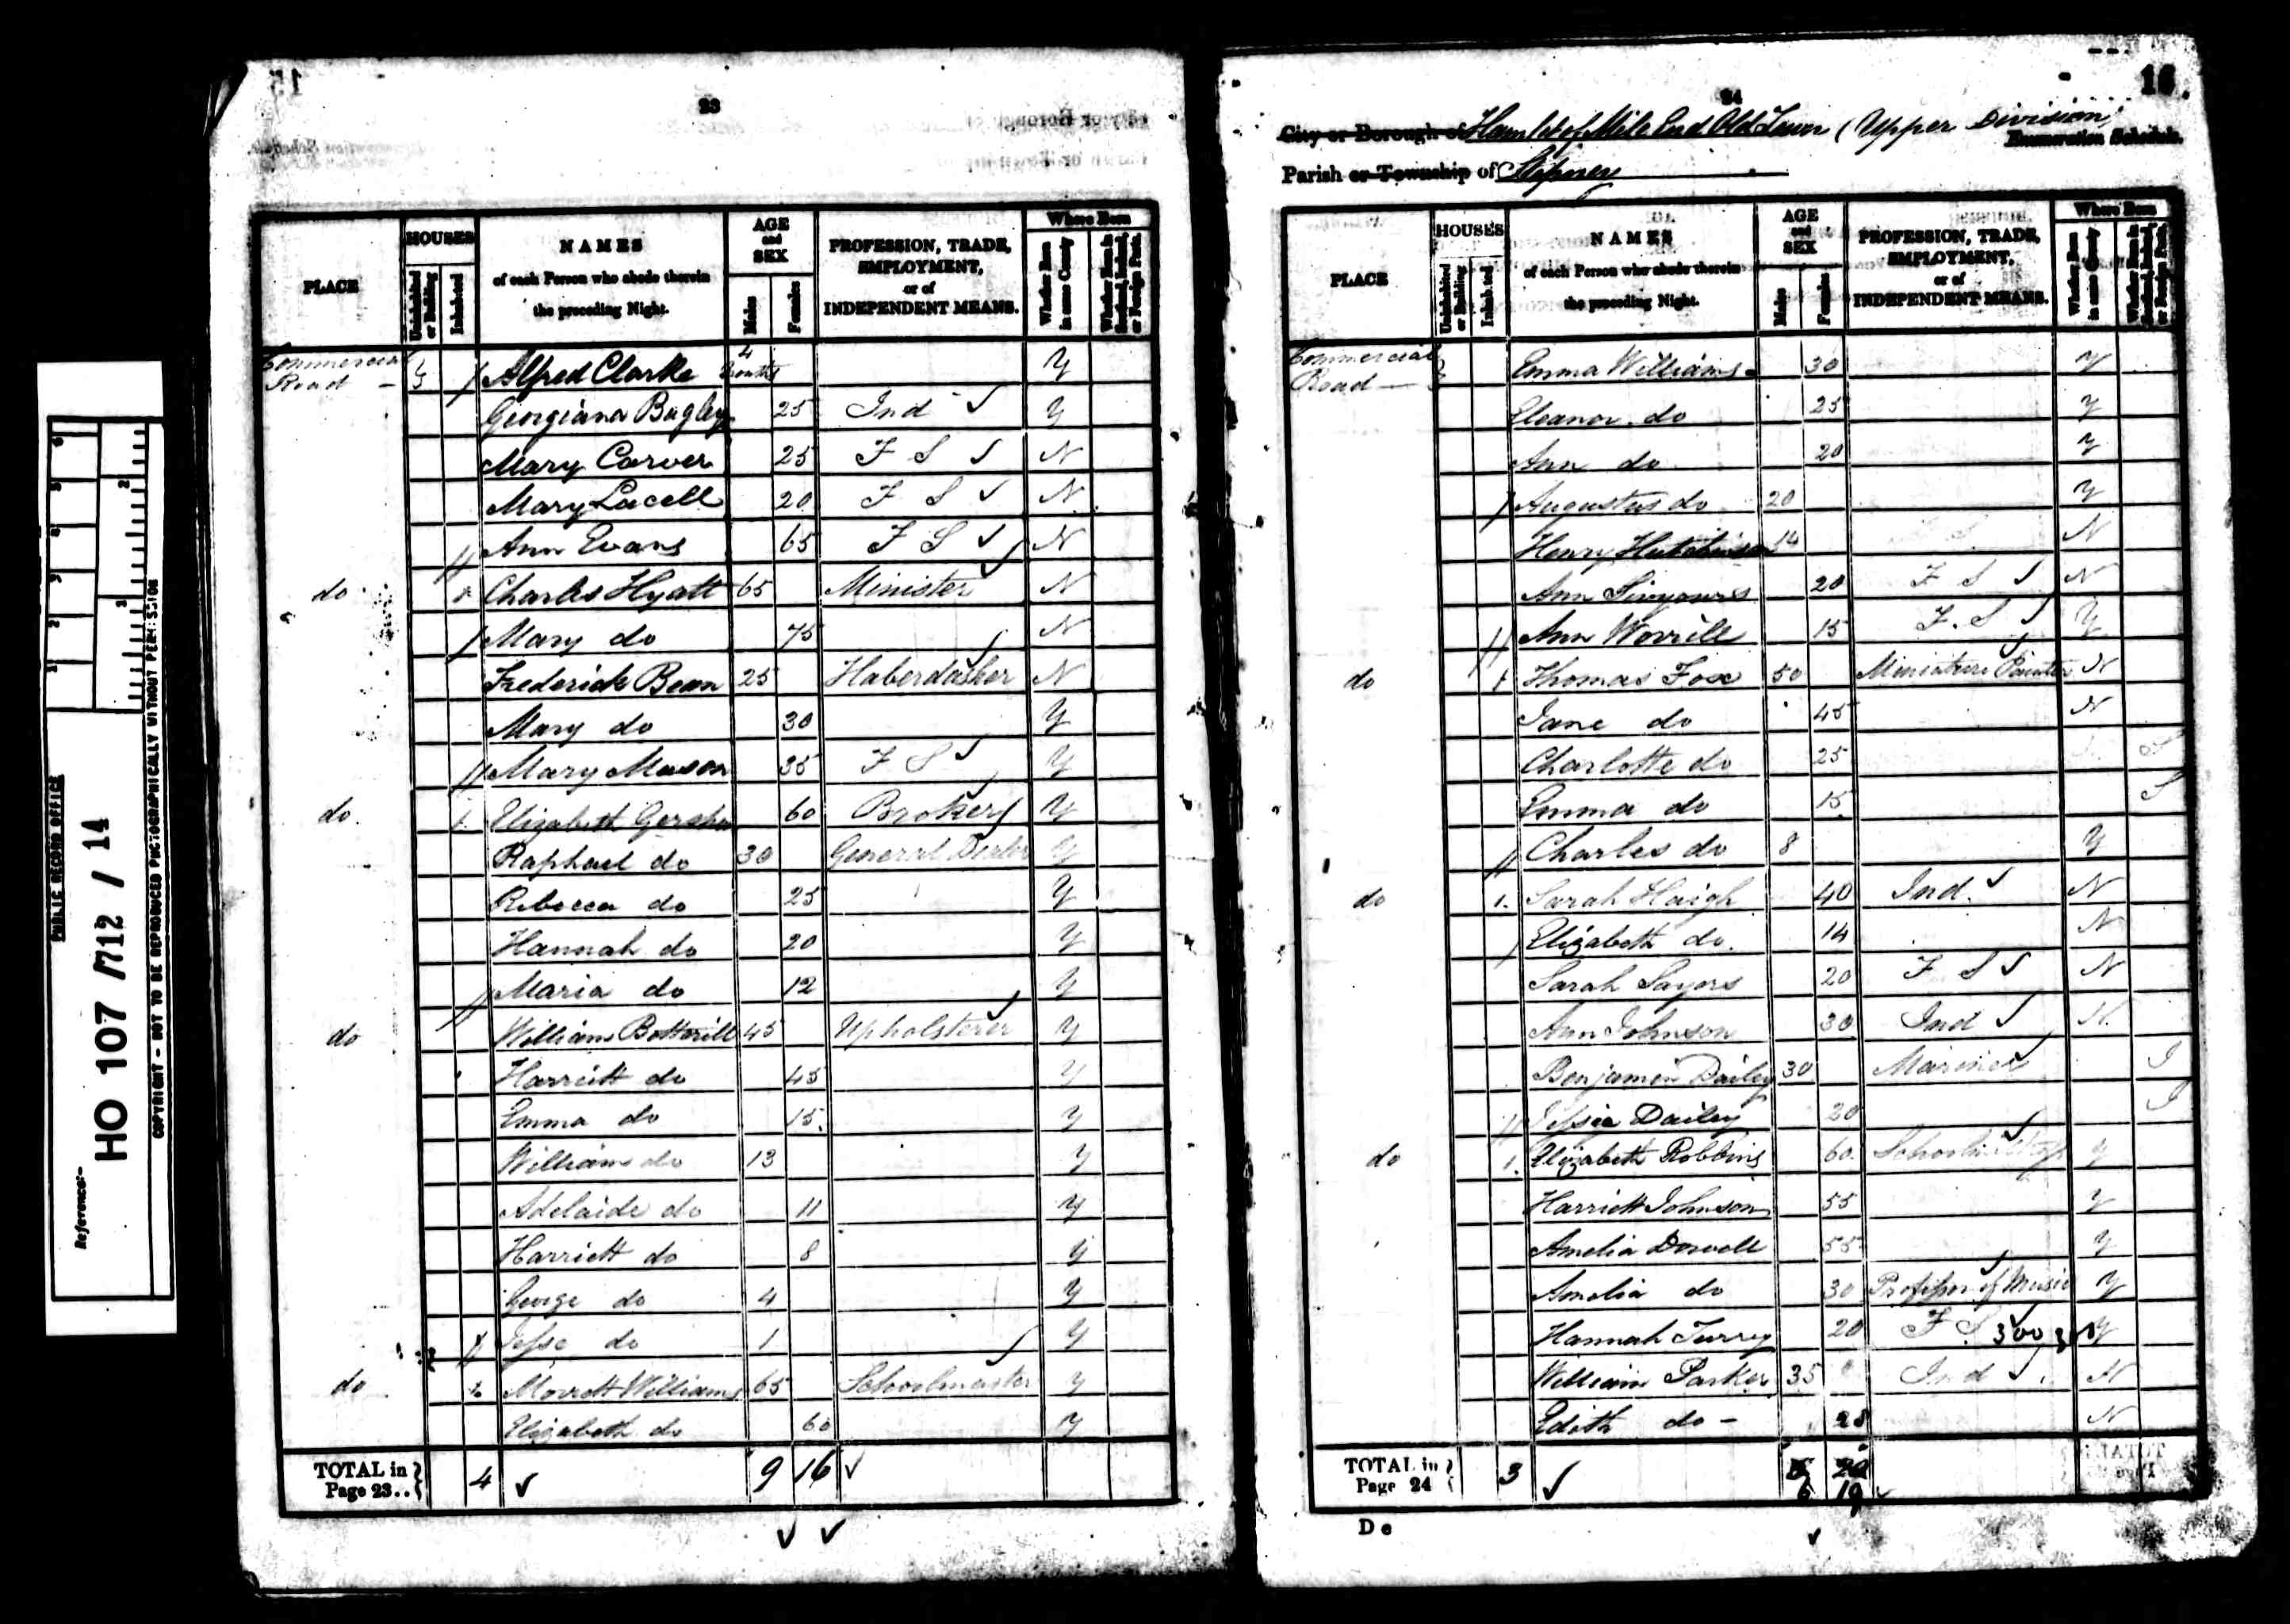 PUBLIC RECORD OFFICE
Reference:-
HO 107 / 712 / 14
COPYRIGHT - NOT TO BE REPRODUCED PHOTOGRAPHICALLY WITHOUT PERMISSION
23
PLACE
HOUSES
Uninhabited or Building
Inhabited
NAMES
of each Person who abode therein
the preceding Night.
AGE and SEX
Males
Females
PROFESSION, TRADE,
EMPLOYMENT,
or of
INDEPENDENT MEANS.
Where Born
Whether Born in same County
Whether Born in Scotland, Ireland, or Foreign Parts.
Commercial Road - Alfred Clarke 4 months Y
Georgiana Bagley 25 Ind Y
Mary Carver 25 F S N
Mary Lacell 20 F S N
Ann Evans 65 F S N
do 1 Charles Hyatt 65 Minister N
Mary do 75 N
Frederick Bean 25 Haberdasher N
Mary do 30 Y
Mary Mason 35 F S Y
do 1 Elizabeth 60 Broker Y
Raphael do 30 General Dealer Y
Rebecca do 25 Y
Hannah do 20 Y
Maria do 12 Y
do William Botterill 45 Upholsterer Y
Harriett do 45 Y
Emma do 15 Y
William do 13 Y
Adelaide do 11 Y
Harriett do 8 Y
George do 4 Y
Jesse do 1 Y
do 1 Williams 65 Schoolmaster Y
Elizabeth do 60 Y
TOTAL in Page 23.. 4 9 16
16.
24
City or Borough of Hamlet of Mile End Old Town (Upper Division)
Enumeration Schedule.
Parish or Township of Stepney
PLACE
HOUSES
Uninhabited or Building
Inhabited
NAMES
of each Person who abode therein
the preceding Night.
AGE and SEX
Males
Females
PROFESSION, TRADE,
EMPLOYMENT,
or of
INDEPENDENT MEANS.
Where Born
Whether Born in same County
Whether Born in Scotland, Ireland, or Foreign Parts.
Commercial Road - Emma Williams 30 Y
Eleanor do 25 Y
Ann do 20 Y
Augustus do 20 Y
Henry Hutchinson 14 N
Ann 20 F S N
Ann Worrill 15 F. S Y
do 1 Thomas Fox 50 Miniature Painter N
Jane do 45 N
Charlotte do 25
Emma do 15
Charles do 8 Y
do 1. Sarah Haigh 40 Ind. N
Elizabeth do. 14 N
Sarah Sayers 20 F S N
Ann Johnson 30 Ind N.
Benjamin Dailey 30 Mariner I
Jessie Dailey 20 I
do 1. Elizabeth Robbins 60. Y
Harriett Johnson 55 Y
Amelia Dowell 55 Y
Amelia do 30 Professor of Music Y
Hannah Turrey 20 F S Y
William Parker 35 Ind N
Edith do - N
TOTAL in Page 24 3 6 19
D e